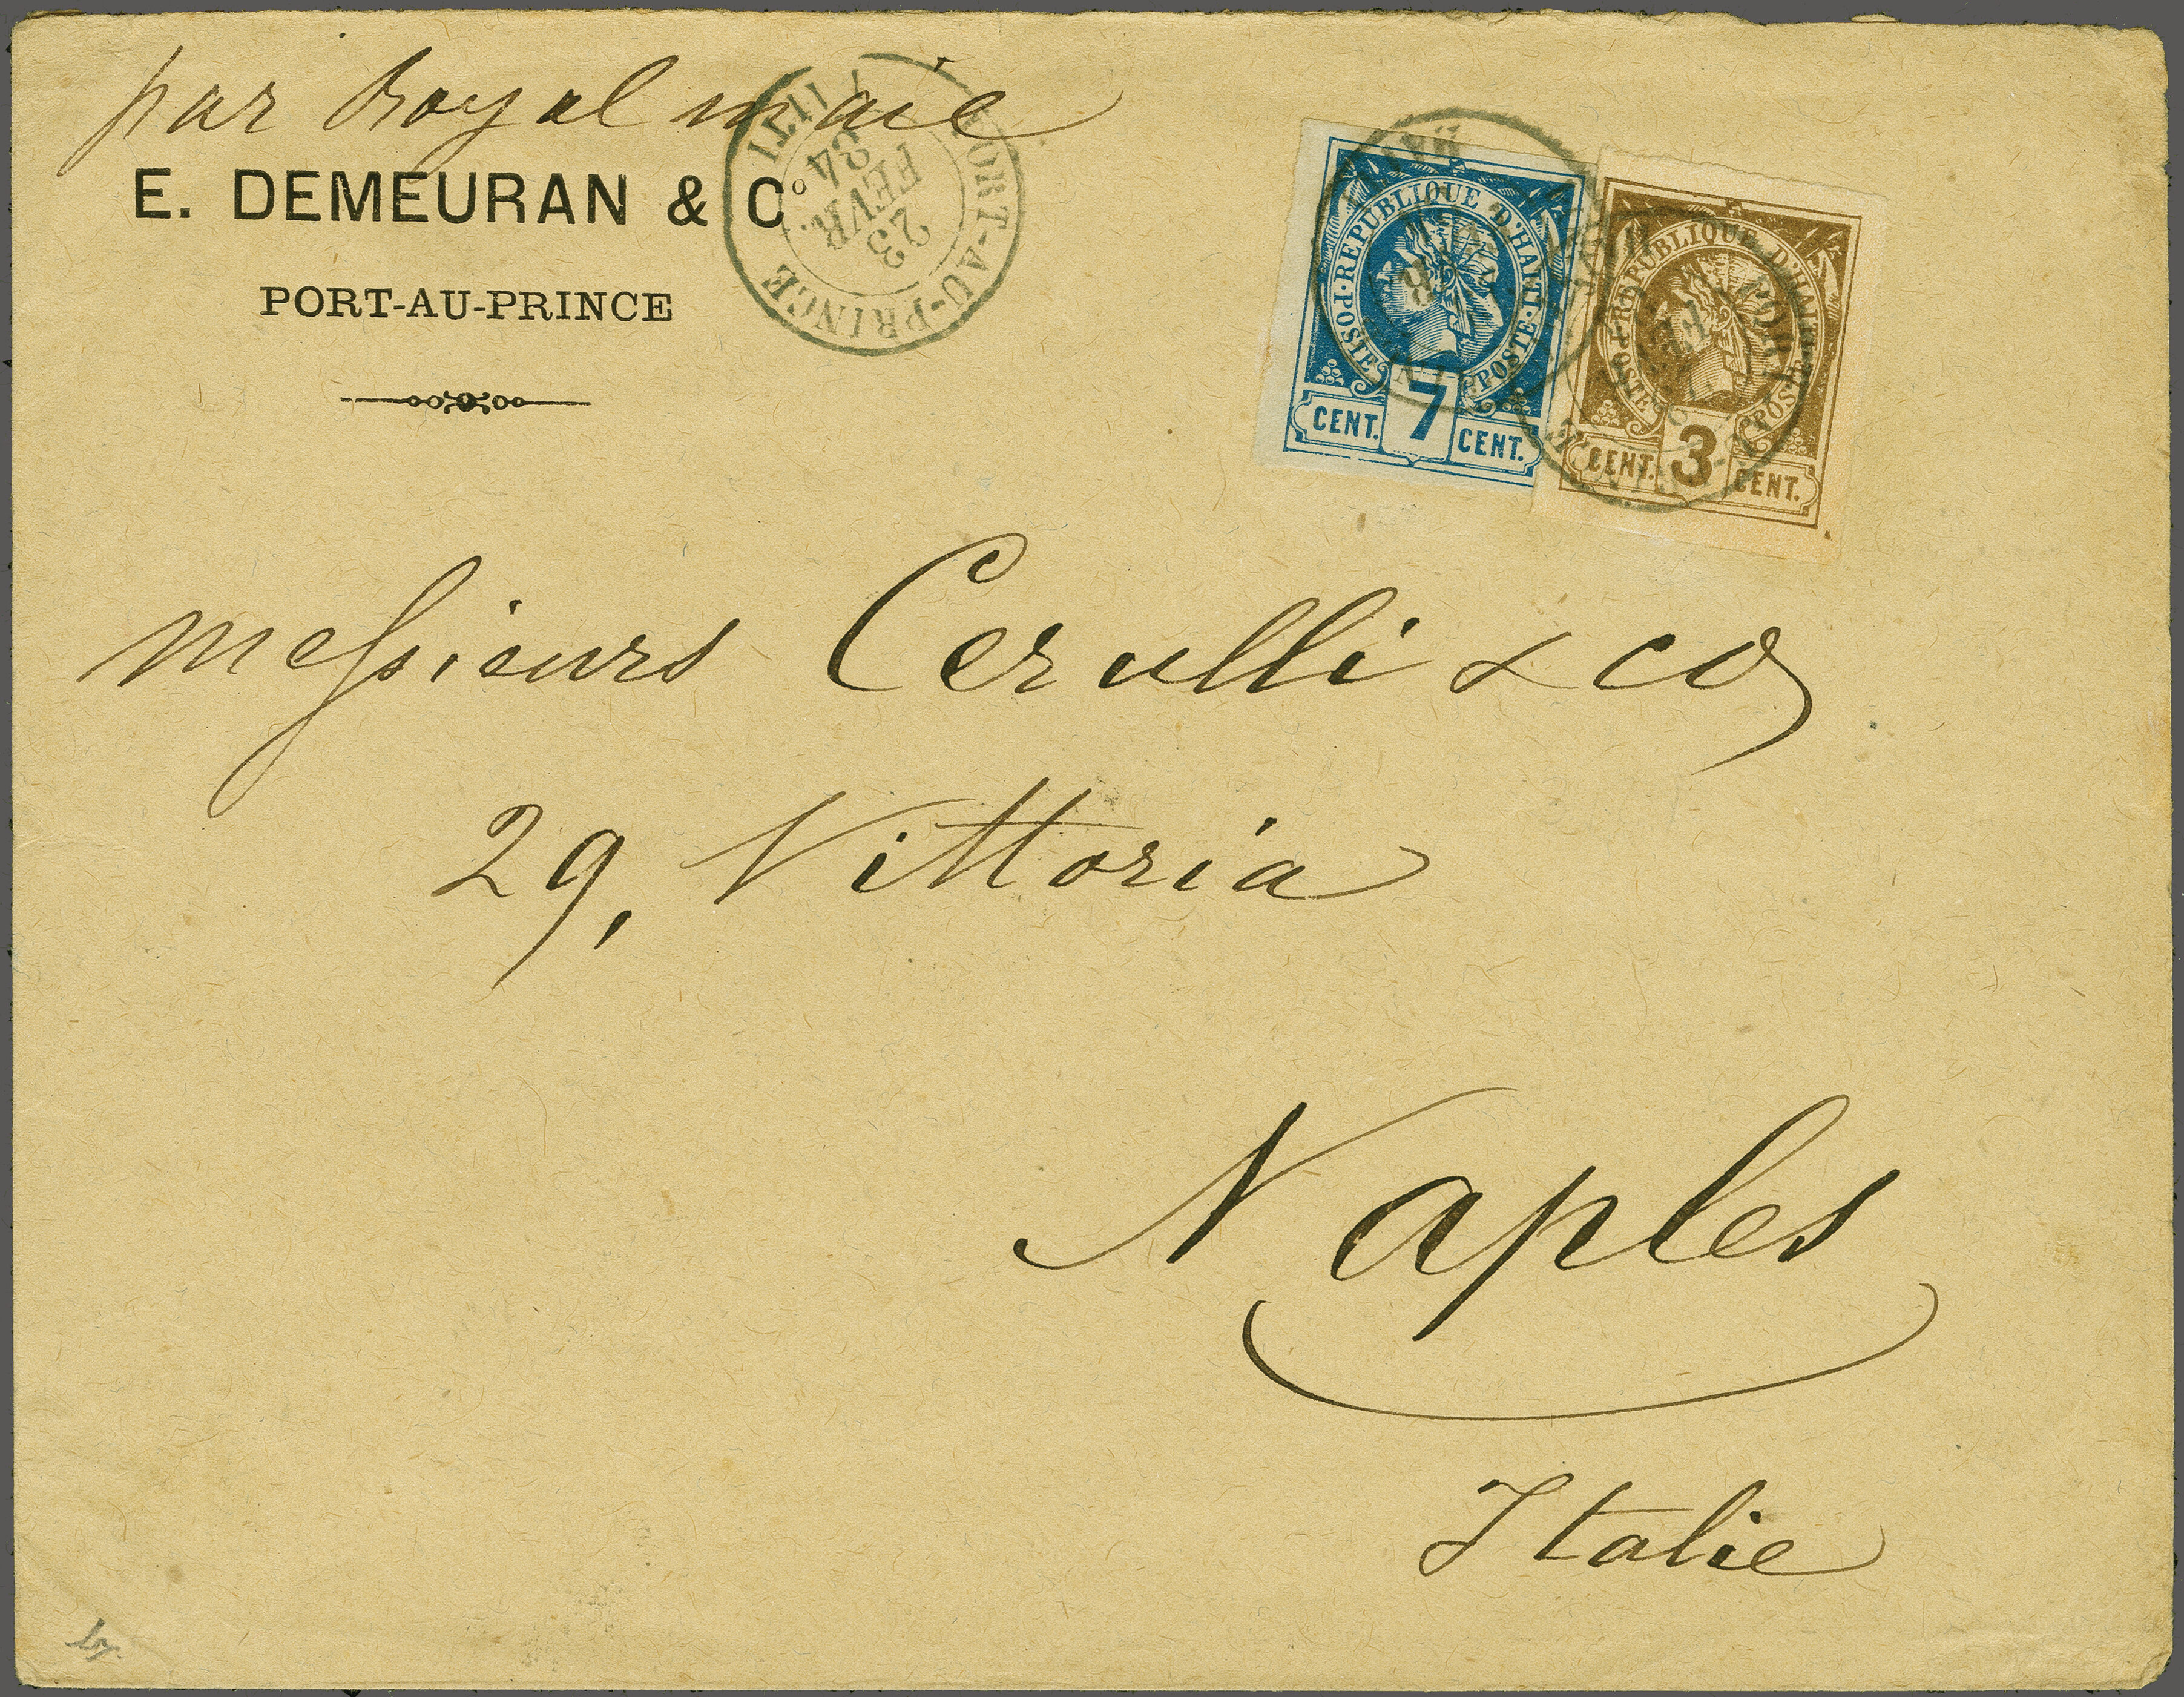 par Royal mail
E. DEMEURAN & Cº
PORT-AU-PRINCE
PORT-AU-PRINCE
HAITI
23
FEVR.
84
REPUBLIQUE D'HAITI
POSTE POSTE
CENT. 7 CENT.
REPUBLIQUE D'HAITI
POSTE POSTE
CENT. 3 CENT.
Messieurs Cerulli & co
29, Vittoria
Naples
Italie